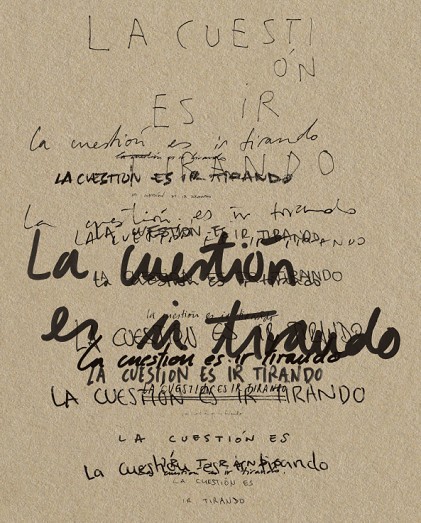 LA CUESTI
ÓN
ES IR
La cuestión es ir tirando
TIRANDO
la cuestión es ir tirando
LA CUESTIÓN ES IR TIRANDO
La cuestión es ir tirando
LA CUESTIÓN ES IR TIRANDO
La cuestión
LA CUESTIÓN ES IR TIRANDO
la cuestión es ir tirando
es ir tirando
LA CUESTIÓN ES IR TIRANDO
La cuestion es ir tirando
LA CUESTION ES IR TIRANDO
LA CUESTIÓN ES IR TIRANDO
LA CUESTIÓN ES IR TIRANDO
LA CUESTIÓN ES
IR TIRANDO
La cuestión es ir tirando
LA CUESTIÓN ES
IR TIRANDO